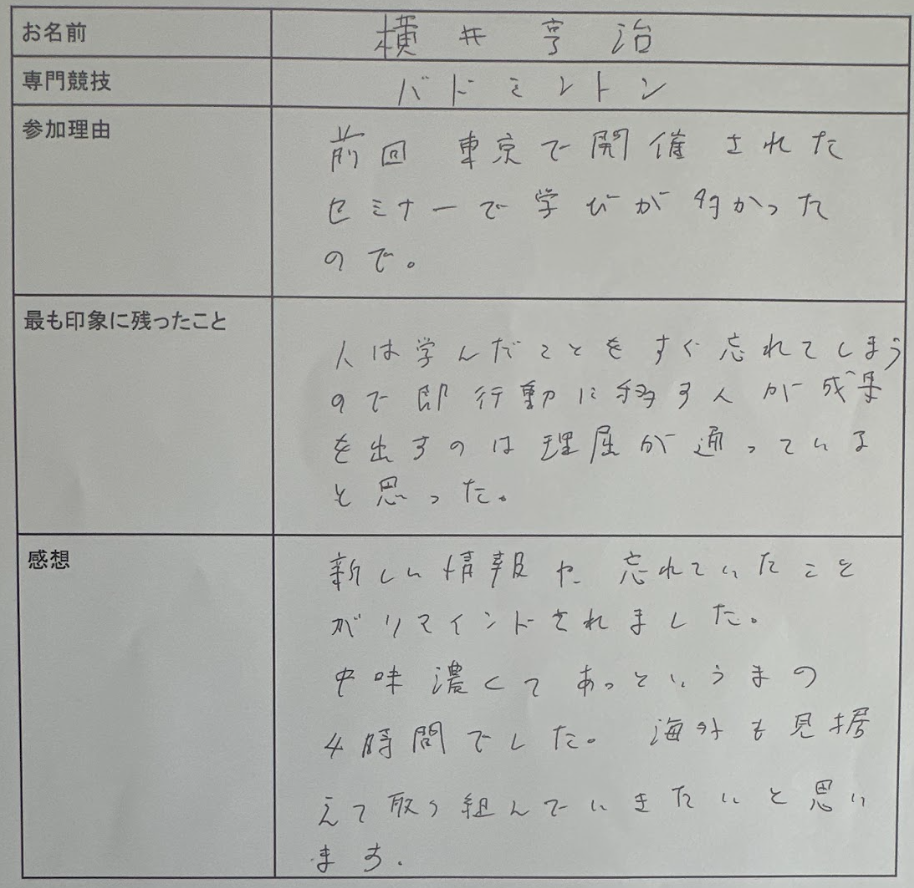 お名前
横井亨治
専門競技
バドミントン
参加理由
前回 東京で開催された
セミナーで学びが多かった
ので。
最も印象に残ったこと
人は学んだことをすぐ忘れてしまう
ので即行動に移す人が成果
を出すのは理屈が通っている
と思った。
感想
新しい情報や、忘れていたこと
がリマインドされました。
中味濃くてあっというまの
4時間でした。海外も見据
えて取り組んでいきたいと思い
ます。